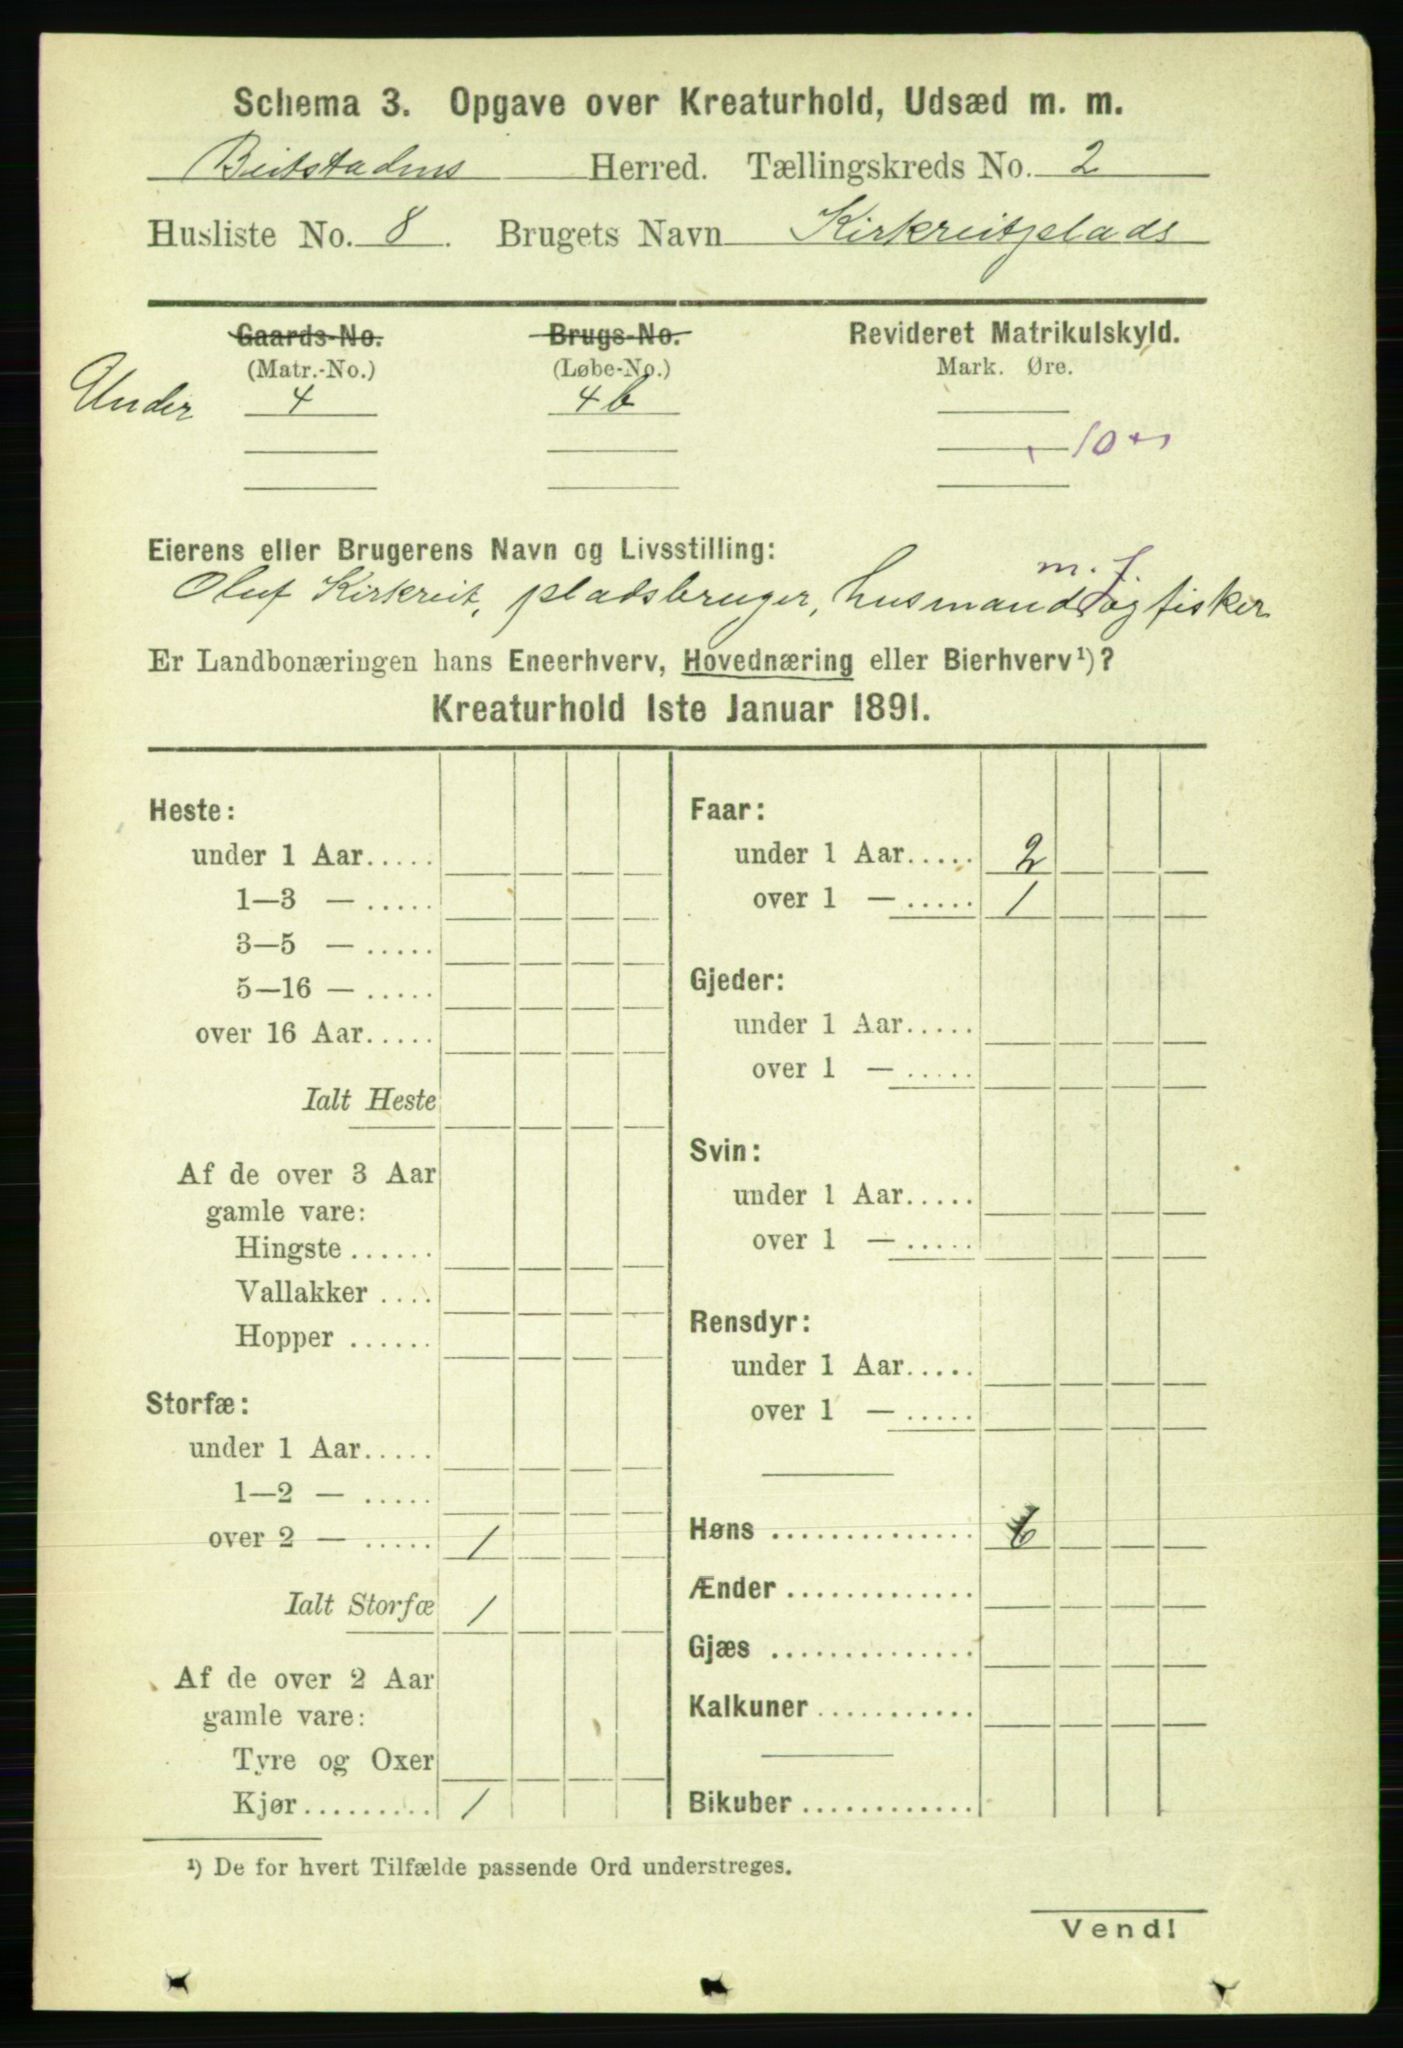 Schema 3. Opgave over Kreaturhold, Udsæd m. m.
Beitstadens Herred. Tællingskreds No. 2
Husliste No. 8. Brugets Navn Kirkreitplads
Gaards-No. Brugs-No. Revideret Matrikulskyld.
(Matr.-No.) (Løbe-No.) Mark. Øre.
Under 4 4 b
10
Eierens eller Brugerens Navn og Livsstilling:
m. j.
Oluf Kirkreit, pladsbruger, husmand og fisker
Er Landbonæringen hans Eneerhverv, Hovednæring eller Bierhverv¹)?
Kreaturhold 1ste Januar 1891.
Heste:
under 1 Aar.....
1—3 — .....
3—5 — .....
5—16 — .....
over 16 Aar.....
Ialt Heste
Af de over 3 Aar
gamle vare:
Hingste ......
Vallakker ....
Hopper ......
Storfæ:
under 1 Aar.....
1—2 — .....
over 2 — ..... 1
Ialt Storfæ 1
Af de over 2 Aar
gamle vare:
Tyre og Oxer
Kjør......... 1
Faar:
under 1 Aar..... 2
over 1 — ..... 1
Gjeder:
under 1 Aar.....
over 1 — .....
Svin:
under 1 Aar.....
over 1 — .....
Rensdyr:
under 1 Aar.....
over 1 — .....
Høns .............. 6
Ænder .............
Gjæs ..............
Kalkuner ...........
Bikuber ............
¹) De for hvert Tilfælde passende Ord understreges.
Vend!